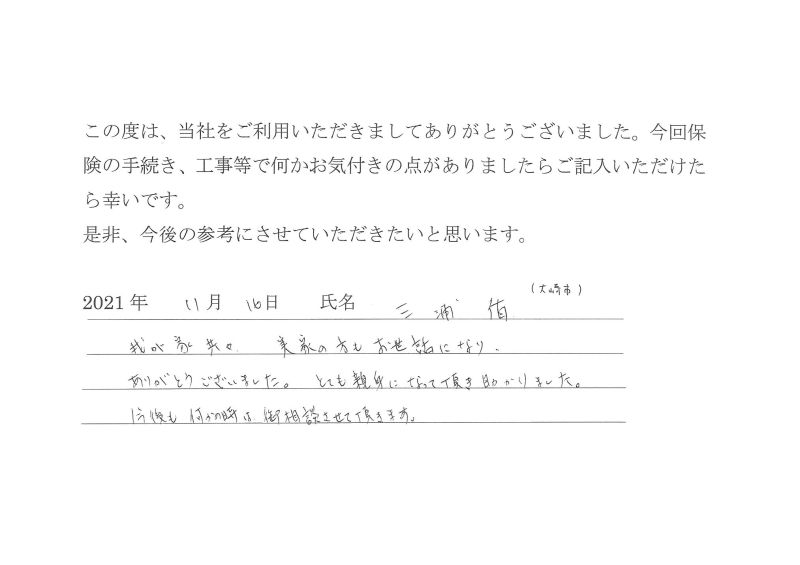 この度は、当社をご利用いただきましてありがとうございました。今回保
険の手続き、工事等で何かお気付きの点がありましたらご記入いただけた
ら幸いです。
是非、今後の参考にさせていただきたいと思います。
(大崎市)
2021年 11月 16日 氏名 三浦
我が家共々 実家の方もお世話になり、
ありがとうございました。とても親身になって頂き助かりました。
今後も何かの時は御相談させて頂きます。